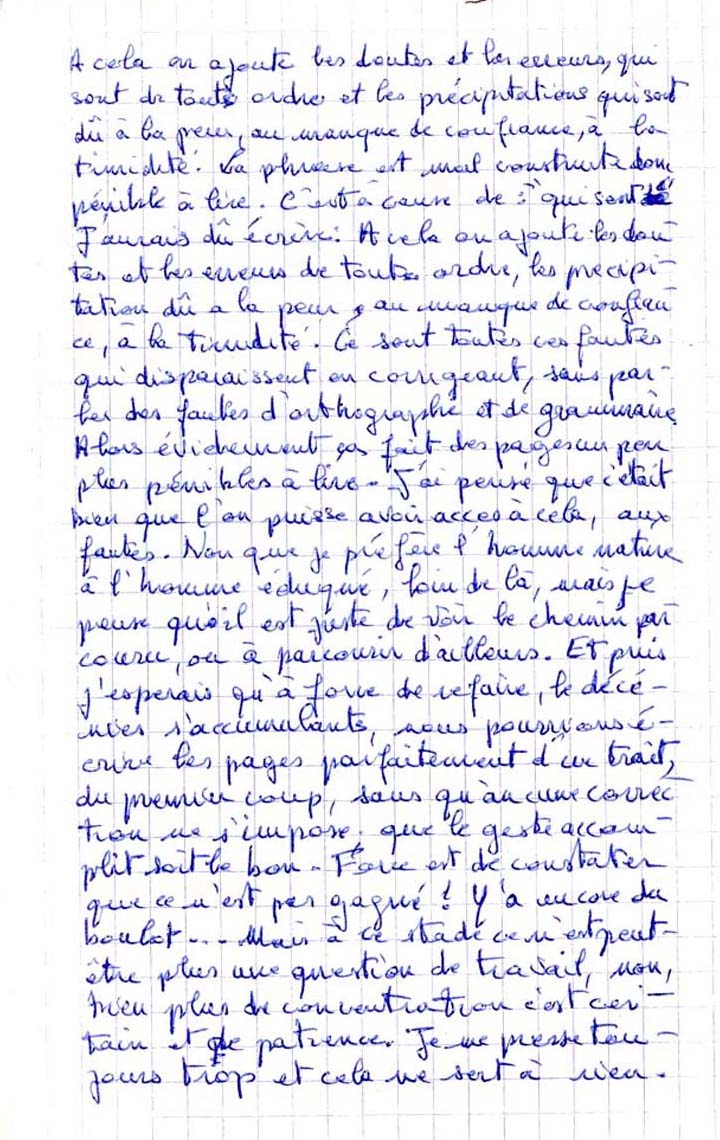 A cela on ajoute les doutes et les erreurs, qui
sont de toute ordre et les précipitations qui sont
dû à la peur, au manque de confiance, à la
timidité. La phrase est mal construite donc
pénible à lire. C'est à cause de : "qui sont
J'aurais dû écrire: A cela on ajoute les dou-
tes et les erreurs de toute ordre, les précipi-
tation dû a la peur, au manque de confian
ce, à la timidité. Ce sont toutes ces fautes
qui disparaissent en corrigeant, sans par-
ler des fautes d'orthographe et de grammaire
Alors évidemment ça fait des pages un peu
plus pénibles à lire. J'ai pensé que c'était
bien que l'on puisse avoir acces à cela, aux
fautes. Non que je préfère l'homme nature
à l'homme éduqué, loin de là, mais je
pense qu'il est juste de voir le chemin par
couru, ou à parcourir d'ailleurs. Et puis
j'esperais qu'à force de refaire, le décé-
nies s'accumulants, nous pourrions é-
crire les pages parfaitement d'un trait,
du premier coup, sans qu'aucune correc-
tion ne s'impose, que le geste accom-
plit soit le bon. Force est de constater
que ce n'est pas gagné ! Y'a encore du
boulot... Mais à ce stade ce n'est peut-
être plus une question de travail, non,
bien plus de concentration c'est cer-
tain et de patience. Je me presse tou-
jours trop et cela ne sert à rien.